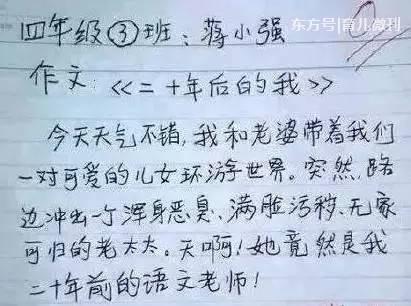 东方号|育儿微刊
四年级③班：蒋小强
作文：<<二十年后的我>>
今天天气不错，我和老婆带着我们
一对可爱的儿女环游世界。突然，路
边冲出一个浑身恶臭、满脸污秽、无家
可归的老太太。天啊！她竟然是我
二十年前的语文老师！